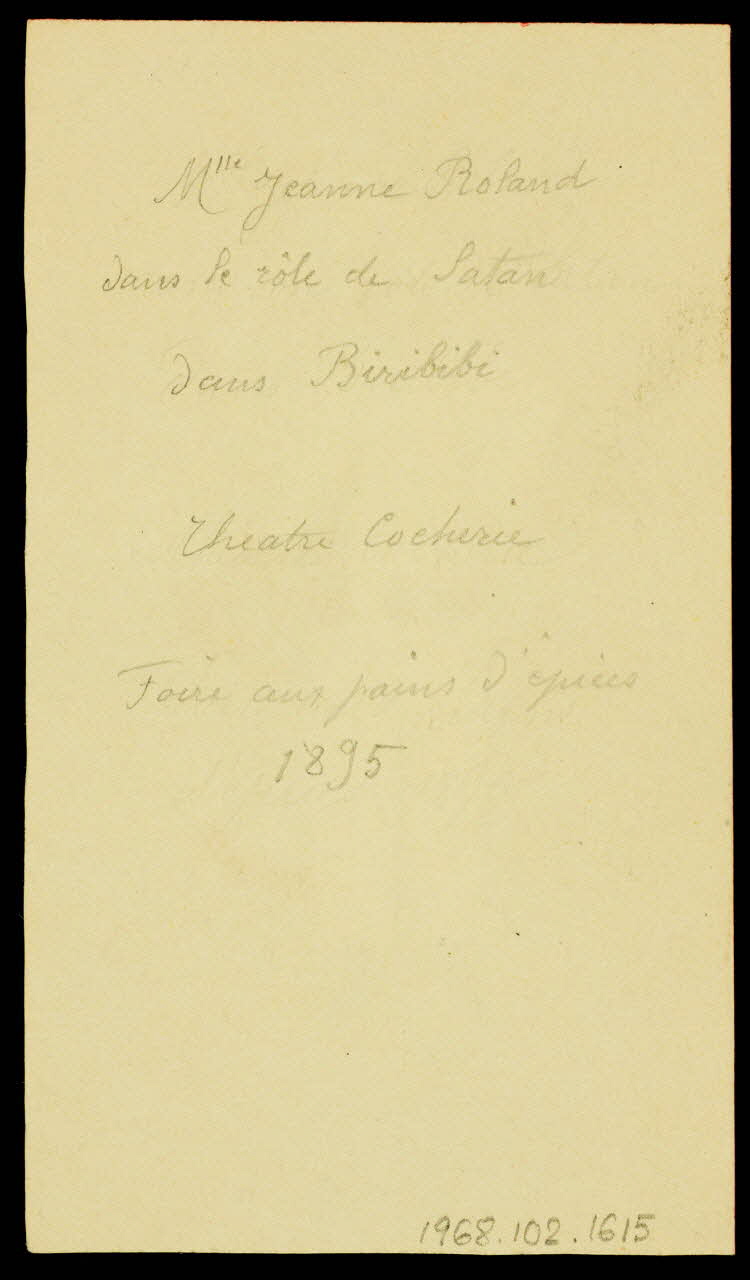 Mlle Jeanne Roland
dans le rôle de Satan
dans Biribibi
Théatre Cocherie
Foire aux pains d'épices
1895
1968.102.1615